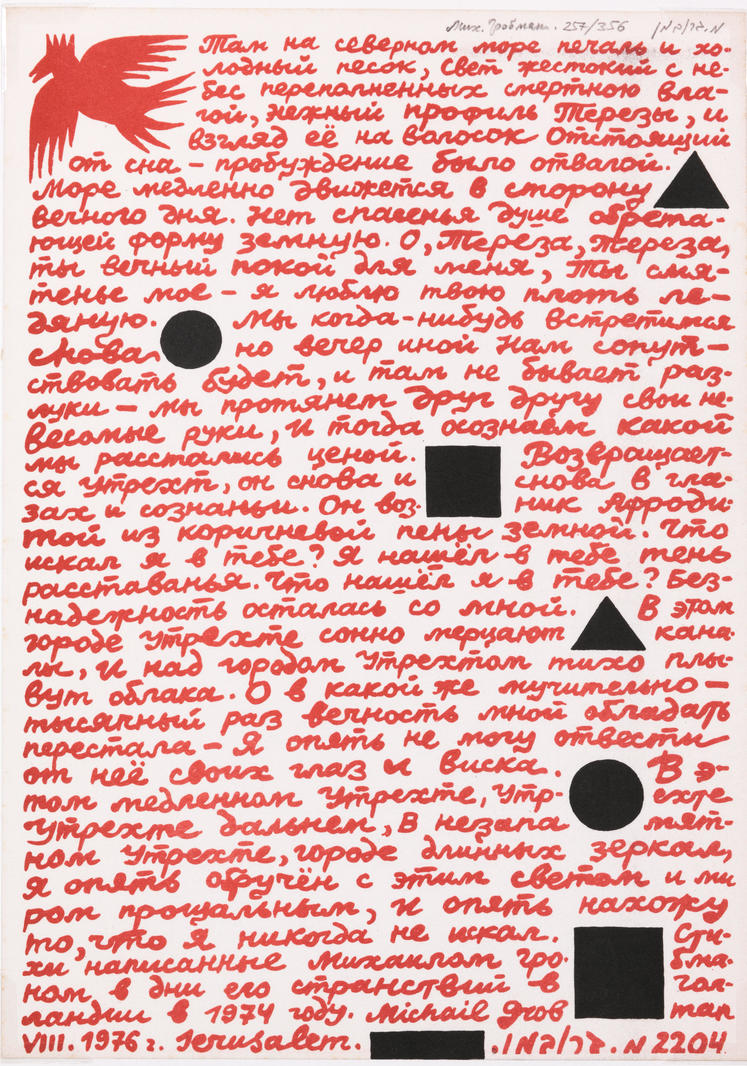 Мих. Гробман. 257/356 מ. גרובמן
Там на северном море печаль и хо-
лодный песок, свет жестокий с не-
бес переполненных смертною вла-
гой, нежный профиль Терезы, и
взгляд её на волосок отстоящий
от сна – пробуждение было отвагой.
Море медленно движется в сторону
вечного дня. Нет спасенья душе обрета-
ющей форму земную. О, Тереза, Тереза,
ты вечный покой для меня, ты смя-
тенье мое – я люблю твою плоть ле-
дяную. Мы когда-нибудь встретимся
снова но вечер иной нам сопут-
ствовать будет, и там не бывает раз-
луки – мы протянем друг другу свои не-
весомые руки, и тогда осознаём какой
мы расстались ценой. Возвращает-
ся Утрехт, он снова и снова в гла-
зах и сознаньи. Он воз- ник Афроди-
той из коричневой пены земной. Что
искал я в тебе? Я нашёл в тебе тень
расставанья. Что нашёл я в тебе? Без-
надежность осталась со мной. В этом
городе Утрехте сонно мерцают кана-
лы, и над городом Утрехтом тихо плы-
вут облака. О в какой же мучительно-
тысячный раз вечность мной обладать
перестала – Я опять не могу отвести
от неё своих глаз и виска. В э-
том медленном Утрехте, Утр- ехте
Утрехте дальнем, в незапа мят-
ном Утрехте, городе длинных зеркал,
я опять обручён с этим светом и ми
ром прощальным, и опять нахожу
то, что я никогда не искал. Сти-
хи написанные Михаилом Гро- бма-
ном в дни его странствий в гол-
ландии в 1974 году. Michail Grob man
VIII. 1976 г. Jerusalem. מ. גרובמן. 2204